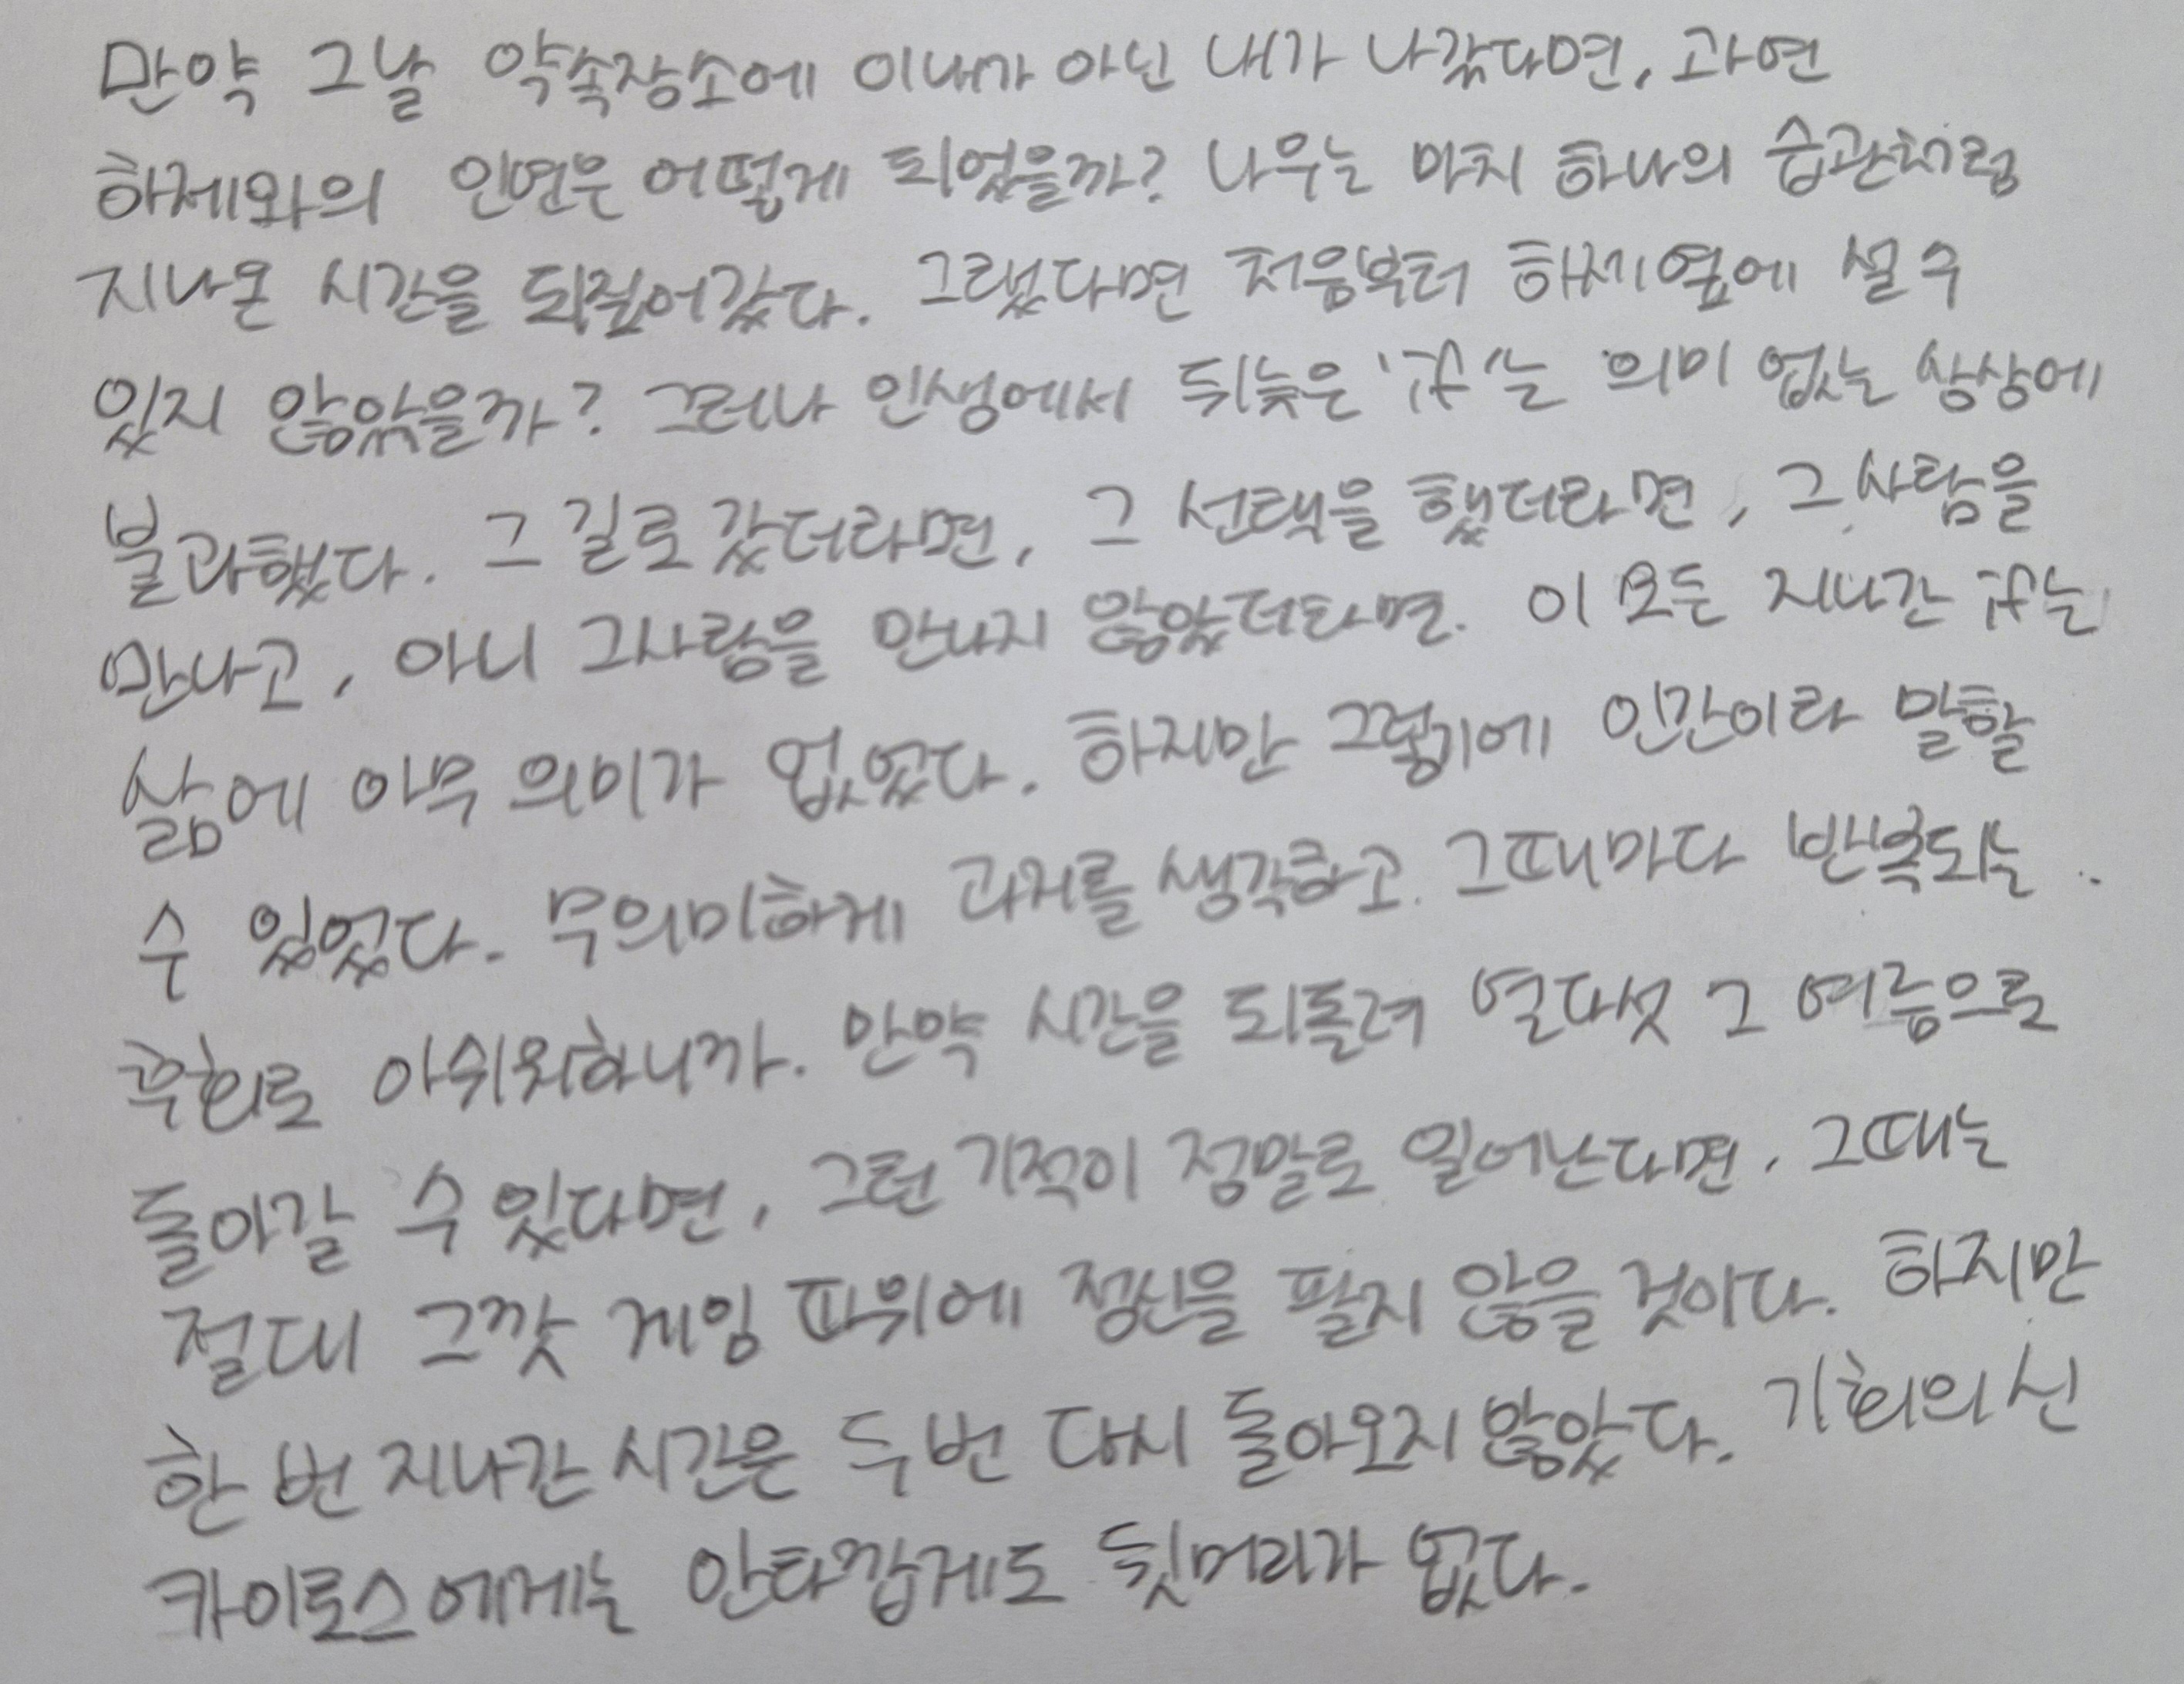 만약 그날 약속장소에 이내가 아닌 내가 나갔다면, 과연
하제와의 인연은 어떻게 되었을까? 나우는 마치 하나의 습관처럼
지나온 시간을 되짚어갔다. 그랬다면 처음부터 하제 옆에 설 수
있지 않았을까? 그러나 인생에서 뒤늦은 'if'는 의미 없는 상상에
불과했다. 그 길로 갔더라면, 그 선택을 했더라면, 그 사람을
만나고, 아니 그사람을 만나지 않았더라면. 이 모든 지나간 if는
삶에 아무 의미가 없었다. 하지만 그렇기에 인간이라 말할
수 있었다. 무의미하게 과거를 생각하고 그때마다 반복되는
후회로 아쉬워하니까. 만약 시간을 되돌려 열다섯 그 여름으로
돌아갈 수 있다면, 그런 기적이 정말로 일어난다면, 그때는
절대 그깟 게임 따위에 정신을 팔지 않을 것이다. 하지만
한 번 지나간 시간은 두 번 다시 돌아오지 않았다. 기회의 신
카이로스에게는 안타깝게도 뒷머리가 없다.